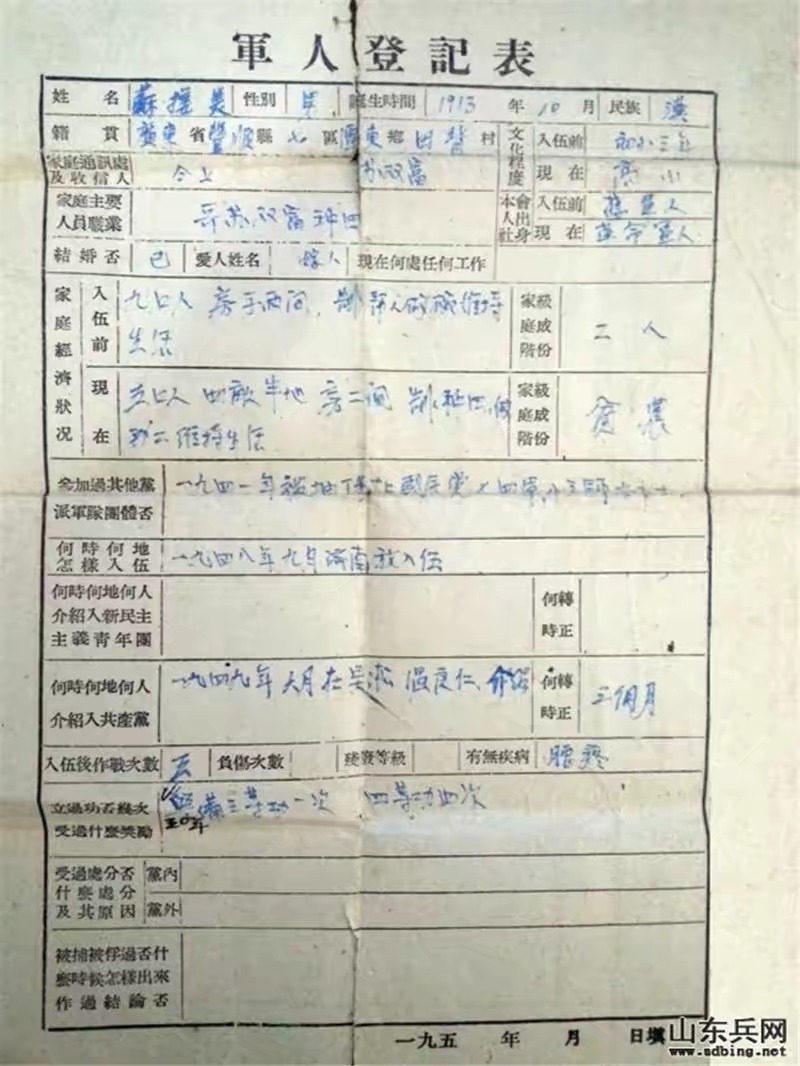 軍人登記表
姓名 蘇 性別 男 誕生時間 1913 年 10 月 民族 漢
籍貫 廣東 省 豐順 縣 七 區 東 鄉 村
文化程度 入伍前 初小三年
家庭通訊處及收信人 仝上 苏双富
現在 高小
家庭主要人員職業 哥苏双富种田
本人社會出身 入伍前 旧軍人
現在 革命軍人
結婚否 已 愛人姓名 現在何處任何工作
家庭經濟狀況
入伍前 九口人 房子两间，
生活
家庭階級成份 工人
現在 五口人 四畝半地 房二间 种田，做
工 維持生活
家庭階級成份 貧農
參加過其他黨派軍隊團體否 一九四一年 国民党
何時何地怎樣入伍 一九四八年九月济南 入伍
何時何地何人介紹入新民主主義青年團
何時轉正
何時何地何人介紹入共產黨 一九四九年六月在吴淞 温良仁 介绍
何時轉正 三個月
入伍後作戰次數 五 負傷次數 殘廢等級 有無疾病 腰疼
立過功否幾次受過什麽獎勵 三等功一次 四等功四次
五〇年
受過處分否什麽處分及其原因 黨內
黨外
被捕被俘過否什麽時候怎樣出來作過結論否
一九五 年 月 日填
山东兵网
www.sdbing.net